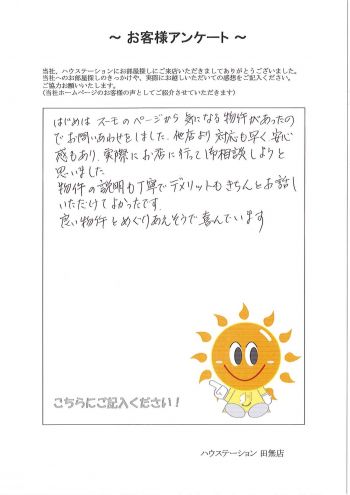 ～ お客様アンケート ～
当社、ハウステーションにお部屋探しにご来店いただきましてありがとうございました。
当社へのお部屋探しのきっかけや、実際にお越しいただいての感想をご記入ください。
ご協力お願いいたします。
(当社ホームページのお客様の声としてご紹介させていただきます)
はじめは スーモ のページから 気になる物件があったの
でお問いあわせをしました。他店より対応も早く安心
感もあり、実際にお店に行って御相談しようと
思いました
物件の説明も丁寧でデメリットもきちんとお話し
いただけてよかったです。
良い物件とめぐりあえそうで喜んでいます
こちらにご記入ください！
ハウステーション 田無店